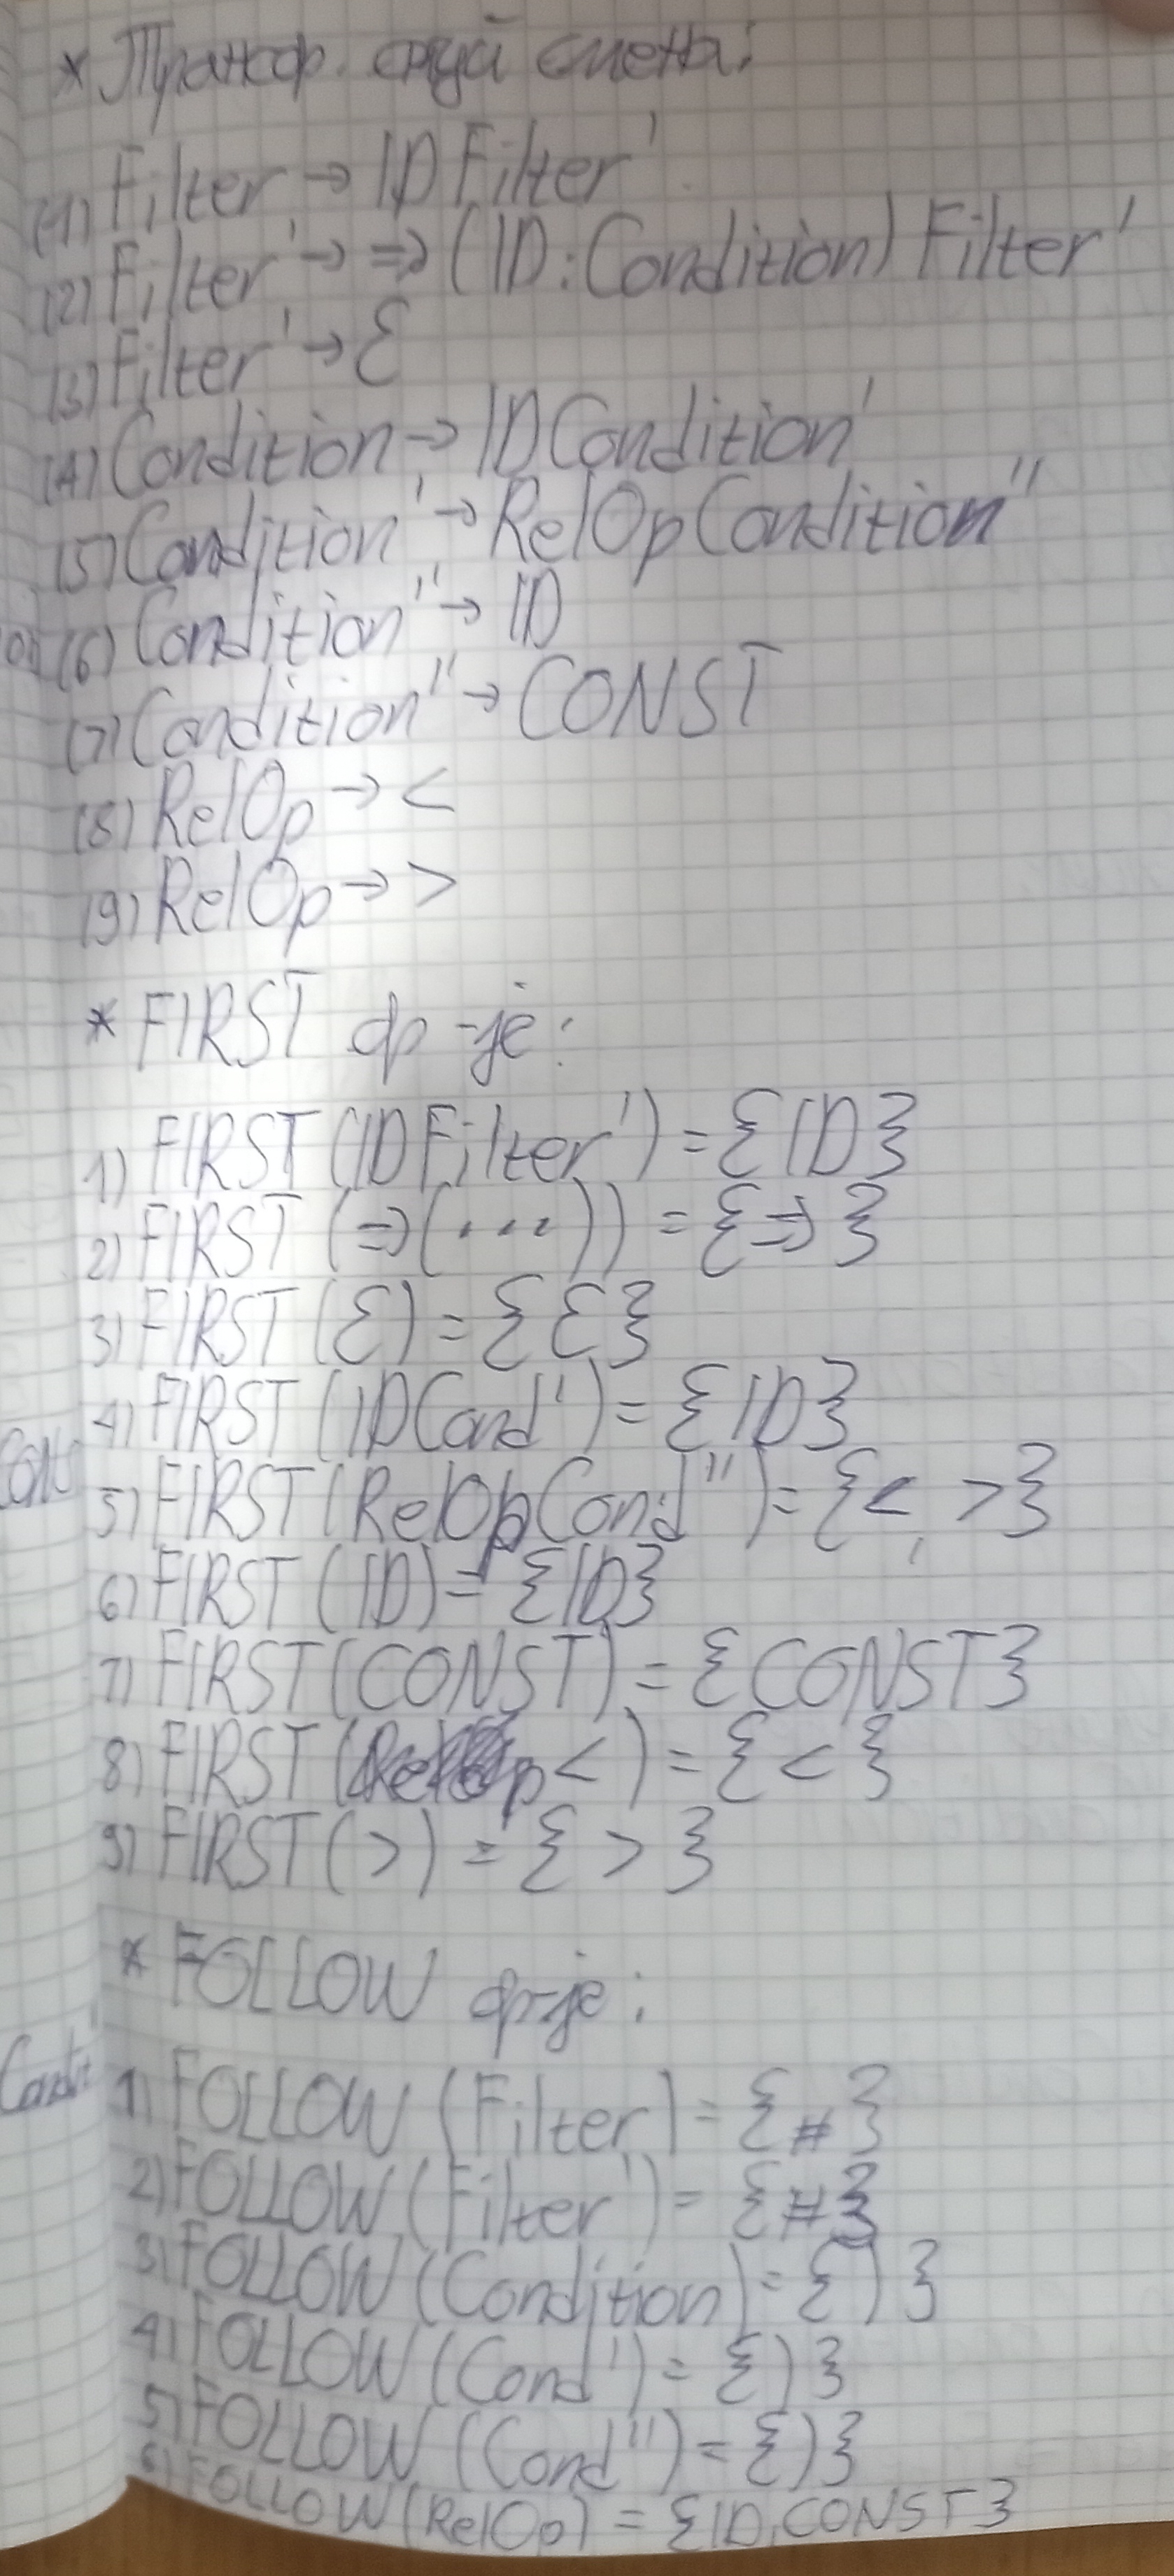 * Трансф. скуй смена:
(1) Filter → ID Filter'
(2) Filter' → => (ID : Condition) Filter'
(3) Filter' → ε
(4) Condition → ID Condition'
(5) Condition' → RelOp Condition''
(6) Condition'' → ID
(7) Condition'' → CONST
(8) RelOp → <
(9) RelOp → >
* FIRST ф-је:
1) FIRST (ID Filter') = {ID}
2) FIRST (=> (...)) = {=>}
3) FIRST (ε) = {ε}
4) FIRST (ID Cond') = {ID}
5) FIRST (RelOp Cond'') = {<, >}
6) FIRST (ID) = {ID}
7) FIRST (CONST) = {CONST}
8) FIRST (<) = {<}
9) FIRST (>) = {>}
* FOLLOW ф-је:
1) FOLLOW (Filter) = {#}
2) FOLLOW (Filter') = {#}
3) FOLLOW (Condition) = {)}
4) FOLLOW (Cond') = {)}
5) FOLLOW (Cond'') = {)}
6) FOLLOW (RelOp) = {ID, CONST}